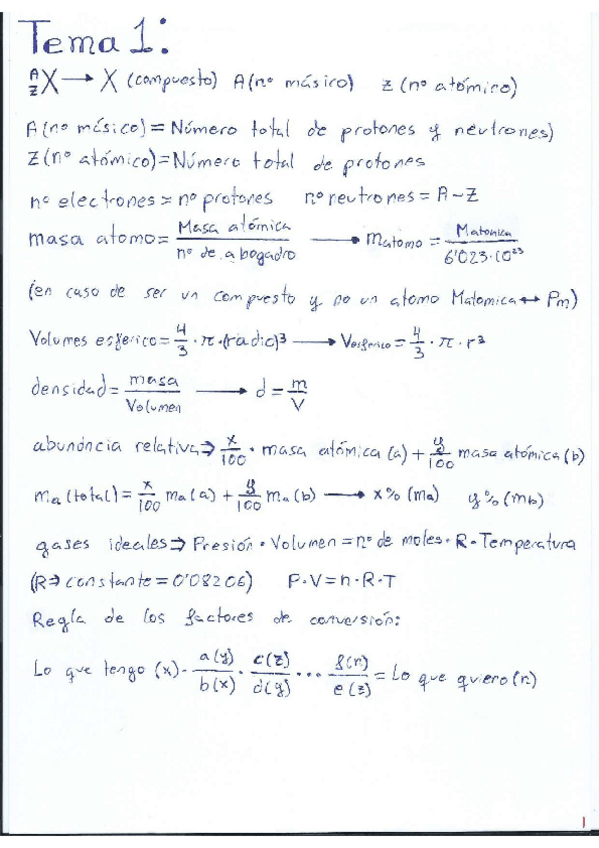 Tema 1:
ᴬ_Z X → X (compuesto) A (nº másico) Z (nº atómico)
A (nº másico) = Número total de protones y neutrones)
Z (nº atómico) = Número total de protones
nº electrones = nº protones nº neutrones = A - Z
masa atomo = Masa atómica / nº de abogadro → m atomo = Matomica / 6'023·10²³
(en caso de ser un compuesto y no un atomo Matomica ↔ Pm)
Volumes esferico = 4/3 · π · (radio)³ → Vesferico = 4/3 · π · r³
densidad = masa / Volumen → d = m / V
abundáncia relativa ⇒ x/100 · masa atómica (a) + y/100 masa atómica (b)
ma (total) = x/100 ma (a) + y/100 ma (b) → x% (ma) y% (mb)
gases ideales ⇒ Presión · Volumen = nº de moles · R · Temperatura
(R ⇒ constante = 0'08206) P · V = n · R · T
Regla de los factores de conversión:
Lo que tengo (x) · a(y)/b(x) · c(z)/d(y) ... f(n)/e(z) = Lo que quiero (n)
1